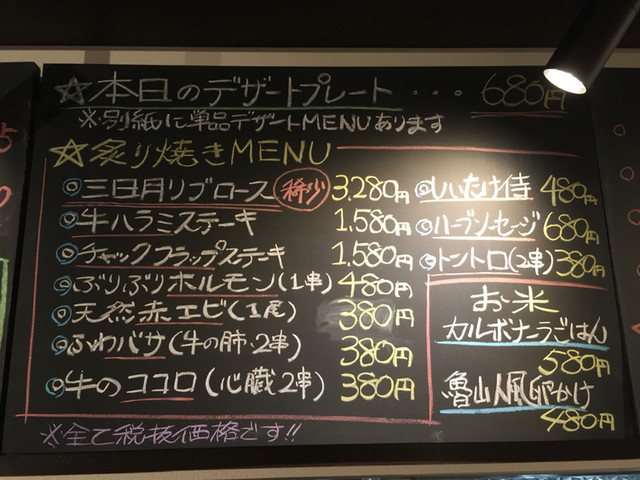 ☆本日のデザートプレート・・・680円
※別紙に単品デザートMENUあります
☆炙り焼きMENU
◎三日月リブロース 稀少 3,280円
◎牛ハラミステーキ 1,580円
◎チャックフラップステーキ 1,580円
◎ぷりぷりホルモン(1串) 480円
◎天然赤エビ(1尾) 380円
◎ふわバサ(牛の肺・2串) 380円
◎牛のココロ(心臓2串) 380円
◎しいたけ侍 480円
◎ハーブソーセージ 680円
◎トントロ(2串) 380円
お米
カルボナーラごはん
580円
魯山人風卵かけ
480円
※全て税抜価格です!!